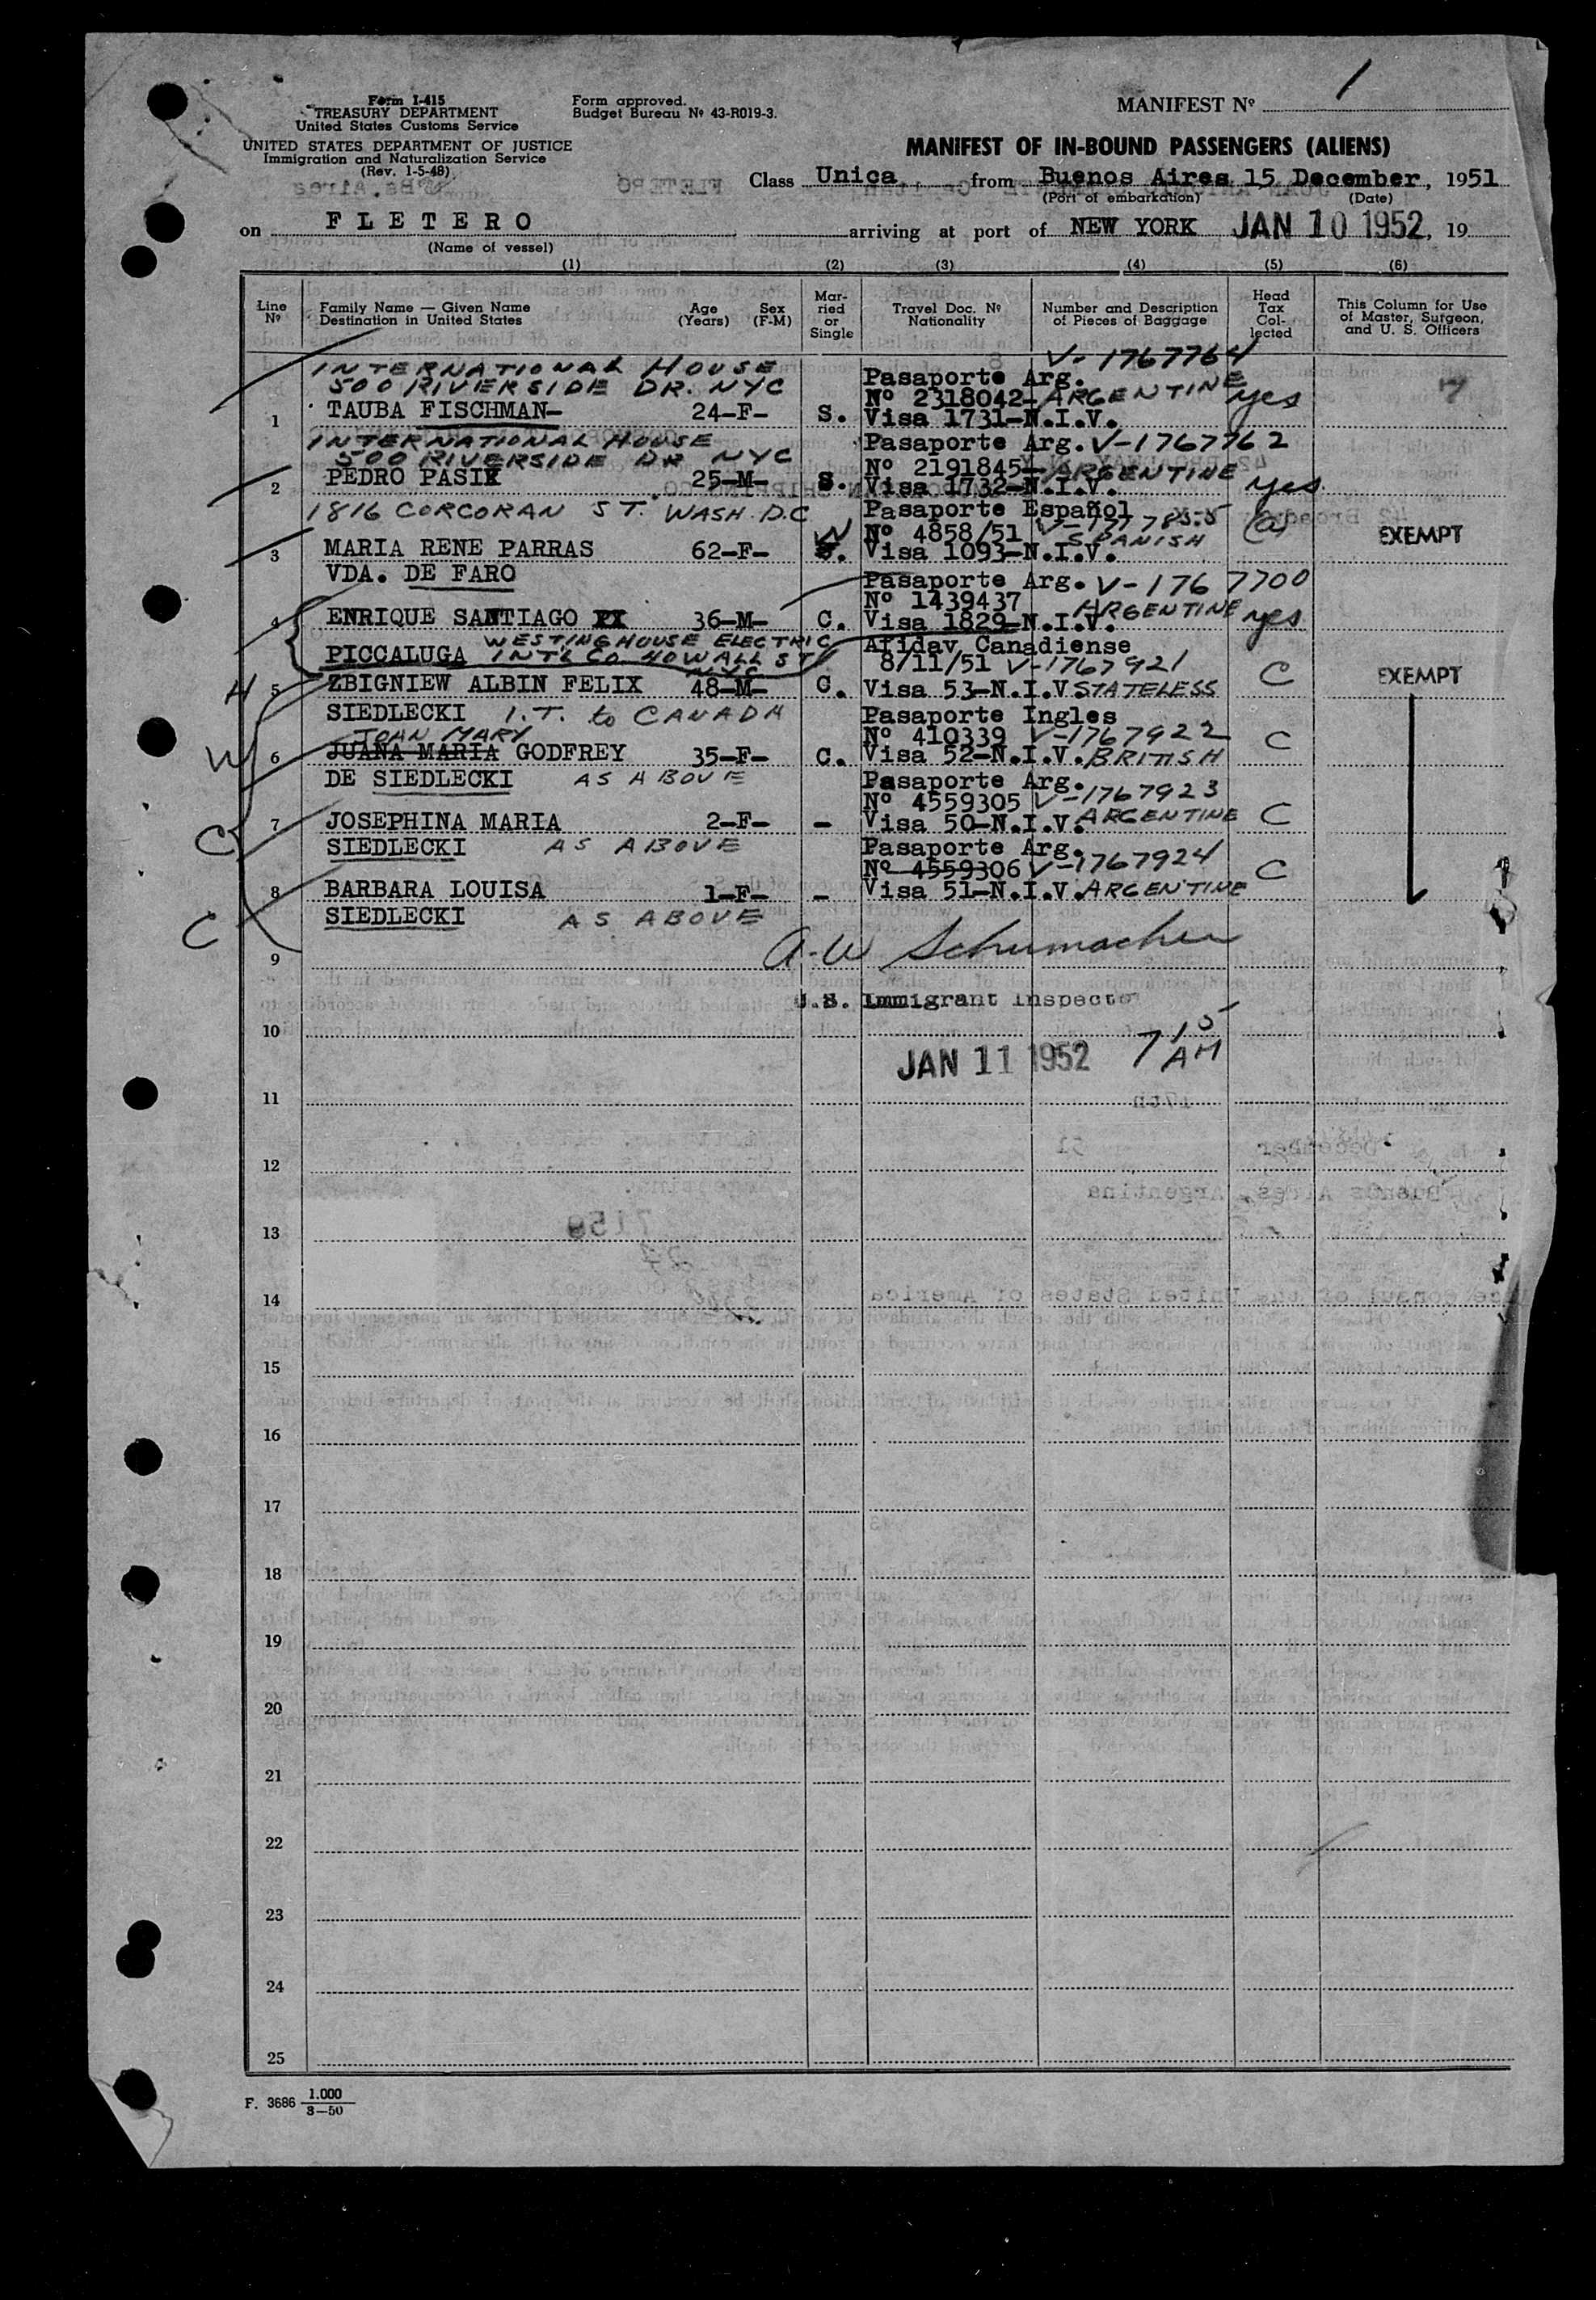 Form I-415
TREASURY DEPARTMENT
United States Customs Service
UNITED STATES DEPARTMENT OF JUSTICE
Immigration and Naturalization Service
(Rev. 1-5-48)
Form approved.
Budget Bureau Nº 43-R019-3.
MANIFEST Nº 1
MANIFEST OF IN-BOUND PASSENGERS (ALIENS)
Class Unica from Buenos Aires 15 December, 1951
(Port of embarkation) (Date)
on FLETERO arriving at port of NEW YORK JAN 10 1952, 19
(Name of vessel)
(1) (2) (3) (4) (5) (6)
Line Nº
Family Name — Given Name
Destination in United States
Age (Years)
Sex (F-M)
Married or Single
Travel Doc. Nº
Nationality
Number and Description of Pieces of Baggage
Head Tax Collected
This Column for Use of Master, Surgeon, and U. S. Officers
INTERNATIONAL HOUSE V-1767764
500 RIVERSIDE DR. NYC Pasaporte Arg.
Nº 2318042- ARGENTINE yes
1 TAUBA FISCHMAN- 24-F- S. Visa 1731-N.I.V.
INTERNATIONAL HOUSE Pasaporte Arg. V-1767762
500 RIVERSIDE DR NYC Nº 2191845- ARGENTINE
2 PEDRO PASIK 25-M- S. Visa 1732-N.I.V. yes
1816 CORCORAN ST. WASH. D.C Pasaporte Español
W Nº 4858/51 SPANISH EXEMPT
3 MARIA RENE PARRAS 62-F- S. Visa 1093-N.I.V.
VDA. DE FARO Pasaporte Arg. V-1767700
Nº 1439437 ARGENTINE yes
4 ENRIQUE SANTIAGO PI 36-M- C. Visa 1829-N.I.V.
WESTINGHOUSE ELECTRIC Afidav Canadiense
PICCALUGA INTL CO. 40 WALL ST NYC 8/11/51 V-1767921 C EXEMPT
H 5 ZBIGNIEW ALBIN FELIX 48-M- C. Visa 53-N.I.V. STATELESS
SIEDLECKI I.T. to CANADA Pasaporte Ingles
JOAN MARY Nº 410339 V-1767922 C
W 6 JUANA MARIA GODFREY 35-F- C. Visa 52-N.I.V. BRITISH
DE SIEDLECKI AS ABOVE Pasaporte Arg.
Nº 4559305 V-1767923
C 7 JOSEPHINA MARIA 2-F- - Visa 50-N.I.V. ARGENTINE C
SIEDLECKI AS ABOVE Pasaporte Arg.
Nº 4559306 V-1767924 C
8 BARBARA LOUISA 1-F- - Visa 51-N.I.V. ARGENTINE
C SIEDLECKI AS ABOVE
9 A.W Schumacher
U.S. Immigrant Inspector
10
JAN 11 1952 7 15 AM
11
12
13
14
15
16
17
18
19
20
21
22
23
24
25
F. 3686 1.000
3-50